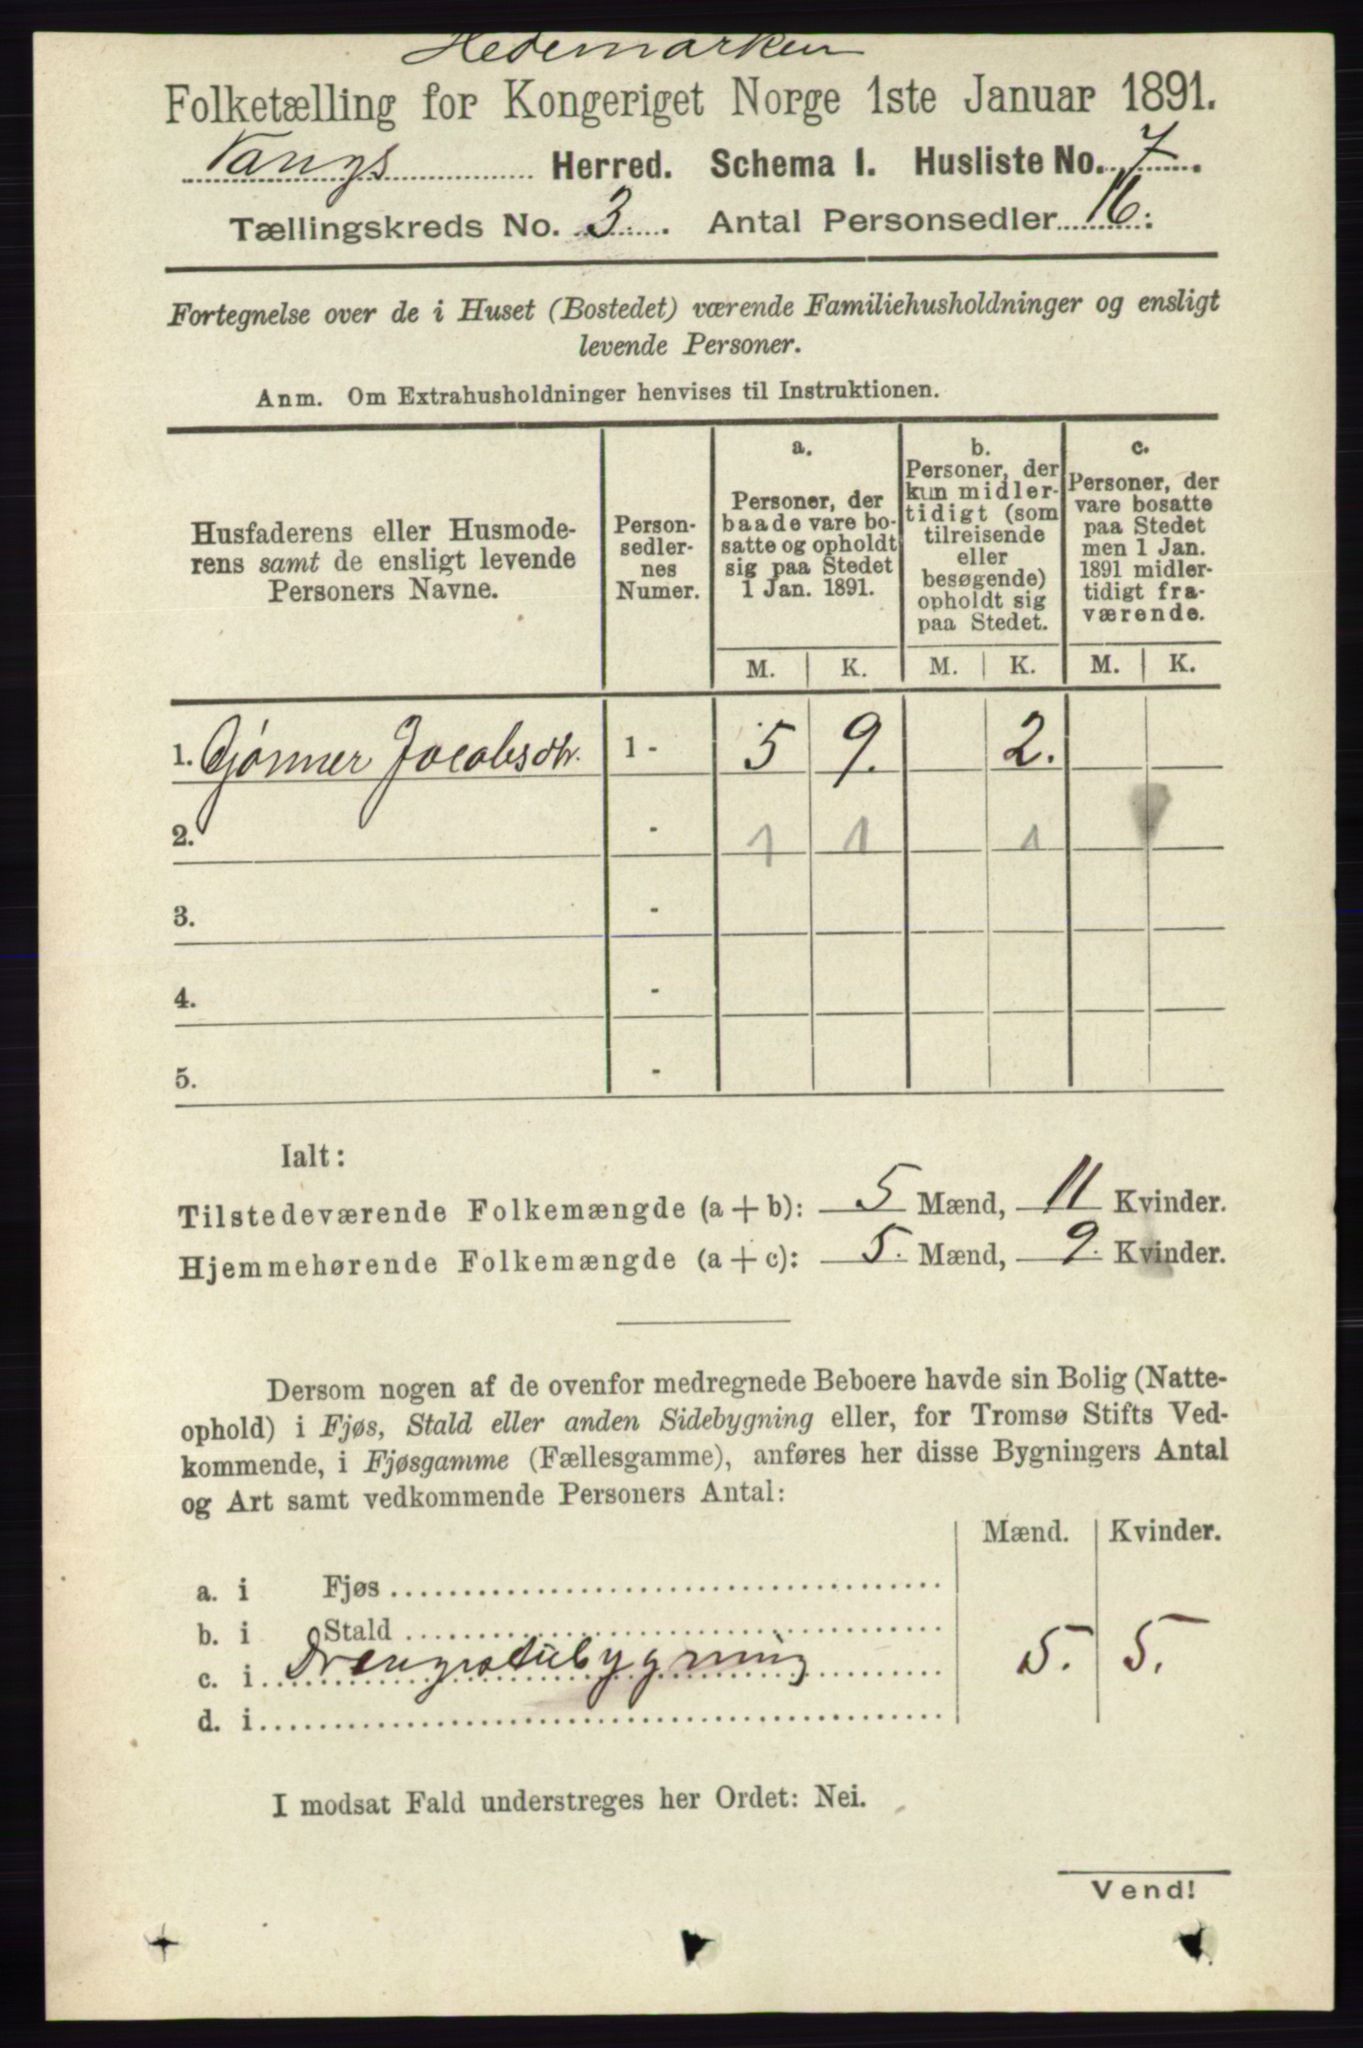 Hedemarken
Folketælling for Kongeriget Norge 1ste Januar 1891.
Vangs Herred. Schema 1. Husliste No. 7.
Tællingskreds No. 3. Antal Personsedler 16.
Fortegnelse over de i Huset (Bostedet) værende Familiehusholdninger og ensligt
levende Personer.
Anm. Om Extrahusholdninger henvises til Instruktionen.
Husfaderens eller Husmode-
rens samt de ensligt levende
Personers Navne.
Person-
sedler-
nes
Numer.
a.
Personer, der
baade vare bo-
satte og opholdt
sig paa Stedet
1 Jan. 1891.
b.
Personer, der
kun midler-
tidigt (som
tilreisende
eller
besøgende)
opholdt sig
paa Stedet.
c.
Personer, der
vare bosatte
paa Stedet
men 1 Jan.
1891 midler-
tidigt fra-
værende.
M. K. M. K. M. K.
1. Gjønner Jacobsdtr. 1 - 5 9. 2.
2. - 1 1 1
3. -
4. -
5. -
Ialt:
Tilstedeværende Folkemængde (a + b): 5 Mænd, 11 Kvinder.
Hjemmehørende Folkemængde (a + c): 5. Mænd, 9. Kvinder.
Dersom nogen af de ovenfor medregnede Beboere havde sin Bolig (Natte-
ophold) i Fjøs, Stald eller anden Sidebygning eller, for Tromsø Stifts Ved-
kommende, i Fjøsgamme (Fællesgamme), anføres her disse Bygningers Antal
og Art samt vedkommende Personers Antal:
Mænd. Kvinder.
a. i Fjøs
b. i Stald
c. i Drengestubygning 5. 5.
d. i
I modsat Fald understreges her Ordet: Nei.
Vend!